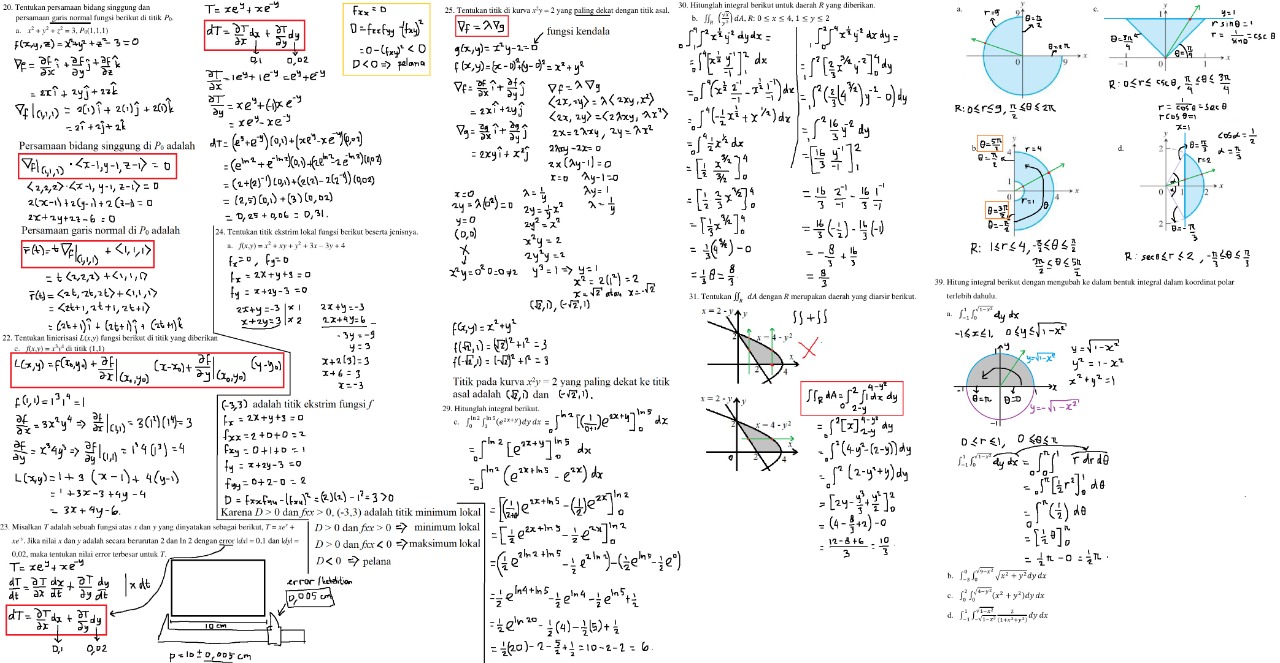 20. Tentukan persamaan bidang singgung dan
persamaan garis normal fungsi berikut di titik P₀.
a. x² + y² + z² = 3, P₀(1,1,1)
f(x,y,z) = x²+y²+z²-3=0
∇f = ∂f/∂x î + ∂f/∂y ĵ + ∂f/∂z k̂
= 2xî + 2yĵ + 2zk̂
∇f|(1,1,1) = 2(1)î + 2(1)ĵ + 2(1)k̂
= 2î + 2ĵ + 2k̂
Persamaan bidang singgung di P₀ adalah
∇f|(1,1,1) · <x-1, y-1, z-1> = 0
<2,2,2>·<x-1, y-1, z-1> = 0
2(x-1)+2(y-1)+2(z-1)=0
2x+2y+2z-6=0
Persamaan garis normal di P₀ adalah
r̄(t)=t ∇f|(1,1,1) + <1,1,1>
= t<2,2,2>+<1,1,1>
r̄(t)= <2t,2t,2t>+<1,1,1>
= <2t+1,2t+1,2t+1>
= (2t+1)î + (2t+1)ĵ + (2t+1)k̂
22. Tentukan linierisasi L(x,y) fungsi berikut di titik yang diberikan
c. f(x,y) = x³y⁴ di titik (1,1)
L(x,y)=f(x₀,y₀)+∂f/∂x|(x₀,y₀) (x-x₀)+∂f/∂y|(x₀,y₀) (y-y₀)
f(1,1)=1³,4=1
∂f/∂x = 3x²y⁴ ⇒ ∂f/∂x|(1,1) = 3(1²)(1⁴)=3
∂f/∂y = x³4y³ ⇒ ∂f/∂y|(1,1) = 1³4(1³)=4
L(x,y)=1+3(x-1)+4(y-1)
= 1+3x-3+4y-4
= 3x+4y-6.
23. Misalkan T adalah sebuah fungsi atas x dan y yang dinyatakan sebagai berikut, T = xeʸ +
xe⁻ʸ. Jika nilai x dan y adalah secara berurutan 2 dan ln 2 dengan error |dx| = 0.1 dan |dy| =
0,02, maka tentukan nilai error terbesar untuk T.
T=xeʸ+xe⁻ʸ
dT/dt = ∂T/∂x dx/dt + ∂T/∂y dy/dt | x dt
dT = ∂T/∂x dx + ∂T/∂y dy
0,1 0,02
10 cm
p=10±0,005 cm
0,005 cm
T=xeʸ+xe⁻ʸ
dT = ∂T/∂x dx + ∂T/∂y dy
0,1 0,02
∂T/∂x = 1eʸ+1e⁻ʸ=eʸ+e⁻ʸ
∂T/∂y = xeʸ+(-1)xe⁻ʸ
= xeʸ-xe⁻ʸ
dT=(eʸ+e⁻ʸ)(0,1)+(xeʸ-xe⁻ʸ)(0,02)
=(e^ln2+e^-ln2)(0,1)+(2e^ln2-2e^-ln2)(0,02)
=(2+(2)⁻¹)(0,1)+(2(2)-2(2⁻¹))(0,02)
=(2,5)(0,1)+(3)(0,02)
= 0,25+0,06=0,31.
fxx=0
D=fxxfyy-(fxy)²
=0-(fxy)²<0
D<0 ⇒ pelana
24. Tentukan titik ekstrim lokal fungsi berikut beserta jenisnya.
a. f(x,y) = x² + xy + y² + 3x − 3y + 4
fx=0, fy=0
fx = 2x+y+3=0
fy = x+2y-3=0
2x+y=-3 | x 1
x+2y=3 | x 2
2x+y=-3
2x+4y=6
-3y=-9
y=3
x+2(3)=3
x+6=3
x=-3
(-3,3) adalah titik ekstrim fungsi f
fx=2x+y+3=0
fxx=2+0+0=2
fxy=0+1+0=1
fy=x+2y-3=0
fyy=0+2-0=2
D=fxxfyy-(fxy)²=(2)(2)-1²=3>0
Karena D > 0 dan fxx > 0, (-3,3) adalah titik minimum lokal
D > 0 dan fxx > 0 ⇒ minimum lokal
D > 0 dan fxx < 0 ⇒ maksimum lokal
D < 0 ⇒ pelana
25. Tentukan titik di kurva x²y = 2 yang paling dekat dengan titik asal.
∇f=λ∇g
fungsi kendala
g(x,y)=x²y-2=0
f(x,y)=(x-0)²+(y-0)²=x²+y²
∇f=∂f/∂x î+∂f/∂y ĵ
= 2xî+2yĵ
∇g=∂g/∂x î+∂g/∂y ĵ
= 2xyî+x²ĵ
∇f=λ∇g
<2x,2y>=λ<2xy,x²>
<2x,2y>=<2λxy,λx²>
2x=2λxy, 2y=λx²
2λxy-2x=0
2x(λy-1)=0
x=0 λy-1=0
λy=1
λ=1/y
x=0
2y=λ(0²)=0
y=0
(0,0)
X
x²y=0²0=0≠2
λ=1/y
2y=1/y x²
2y²=x²
x²y=2
2y²y=2
y³=1 ⇒ y=1
x²=2(1²)=2
x=√2 atau x=-√2
(√2,1), (-√2,1)
f(x,y)=x²+y²
f(√2,1)=(√2)²+1²=3
f(-√2,1)=(-√2)²+1²=3
Titik pada kurva x²y = 2 yang paling dekat ke titik
asal adalah (√2,1) dan (-√2,1).
29. Hitunglah integral berikut.
c. ∫₀^ln2 ∫₁^ln5 (e^(2x+y)) dy dx = ∫₀^ln2 [(1/(0+1))e^(2x+y)]₀^ln5 dx
= ∫₀^ln2 [e^(2x+y)]₀^ln5 dx
= ∫₀^ln2 (e^(2x+ln5) - e^(2x)) dx
= [(1/(2+0))e^(2x+ln5) - (1/2)e^(2x)]₀^ln2
= [1/2 e^(2x+ln5) - 1/2 e^(2x)]₀^ln2
= (1/2 e^(2ln2+ln5) - 1/2 e^(2ln2)) - (1/2 e^ln5 - 1/2 e⁰)
= 1/2 e^(ln4+ln5) - 1/2 e^ln4 - 1/2 e^ln5 + 1/2
= 1/2 e^ln20 - 1/2(4) - 1/2(5) + 1/2
= 1/2(20)-2-5/2+1/2=10-2-2=6.
30. Hitunglah integral berikut untuk daerah R yang diberikan.
b. ∬R (√x/y²) dA, R: 0 ≤ x ≤ 4, 1 ≤ y ≤ 2
∫₀⁴∫₁² x^½ y⁻² dy dx =
= ∫₀⁴ [x^½ y⁻¹/-1]₁² dx
= ∫₀⁴ (x^½ 2⁻¹/-1 - x^½ 1⁻¹/-1) dx
= ∫₀⁴ (-1/2 x^½ + x^½) dx
= ∫₀⁴ 1/2 x^½ dx
= [1/2 x^(3/2)/(3/2)]₀⁴
= [1/2 2/3 x^(3/2)]₀⁴
= [1/3 x^(3/2)]₀⁴
= 1/3(4^(3/2)) - 0
= 1/3 8 = 8/3
∫₁²∫₀⁴ x^½ y⁻² dx dy =
= ∫₁² [2/3 x^(3/2) y⁻²]₀⁴ dy
= ∫₁² (2/3(4^(3/2)) y⁻² - 0) dy
= ∫₁² 16/3 y⁻² dy
= [16/3 y⁻¹/-1]₁²
= 16/3 2⁻¹/-1 - 16/3 1⁻¹/-1
= 16/3(-1/2) - 16/3(-1)
= -8/3 + 16/3
= 8/3
31. Tentukan ∬R dA dengan R merupakan daerah yang diarsir berikut.
x = 2 - y
x = 4 - y²
2
2 4
x
∬+∬
X
x = 2 - y
x = 4 - y²
2
2 4
x
∬R dA=∫₀²∫_{2-y}^{4-y²} 1 dx dy
= ∫₀² [x]_{2-y}^{4-y²} dy
= ∫₀² (4-y²-(2-y)) dy
= ∫₀² (2-y²+y) dy
= [2y - y³/3 + y²/2]₀²
= (4-8/3+2)-0
= (12-8+6)/3 = 10/3.
a.
r=9
θ=π/2
θ=2π
9
x
R: 0≤r≤9, π/2≤θ≤2π
b.
θ=5π/2
θ=π/2
r=4
r=1
θ
θ=3π/2
θ=-π/2
R: 1≤r≤4, -π/2≤θ≤π/2
3π/2≤θ≤5π/2
c.
y=1
r sinθ=1
r=1/sinθ=csc θ
θ=3π/4
θ=π/4
-1 0 1
R: 0≤r≤csc θ, π/4≤θ≤3π/4
d.
r=1/cosθ=sec θ
r cosθ=1
x=1
θ=π/3
r=2
cosα=1/2
α=π/3
θ=-π/3
R: secθ≤r≤2, -π/3≤θ≤π/3
39. Hitung integral berikut dengan mengubah ke dalam bentuk integral dalam koordinat polar
terlebih dahulu.
a. ∫₋₁¹∫₀^√(1-x²) dy dx
-1≤x≤1, 0≤y≤√(1-x²)
y=√(1-x²)
θ=π θ=0
-1 1 x
y=-√(1-x²)
y=√(1-x²)
y²=1-x²
x²+y²=1
0≤r≤1, 0≤θ≤π
∫₋₁¹∫₀^√(1-x²) dy dx = ∫₀^π∫₀¹ r dr dθ
= ∫₀^π [1/2 r²]₀¹ dθ
= ∫₀^π (1/2) dθ
= [1/2 θ]₀^π
= 1/2π - 0 = 1/2π.
c. ∫₀²∫₀^√(4-y²) (x² + y²) dy dx
d. ∫₋₁¹∫_{-√(1-x²)}^{√(1-x²)} 2/(1+x²+y²) dy dx